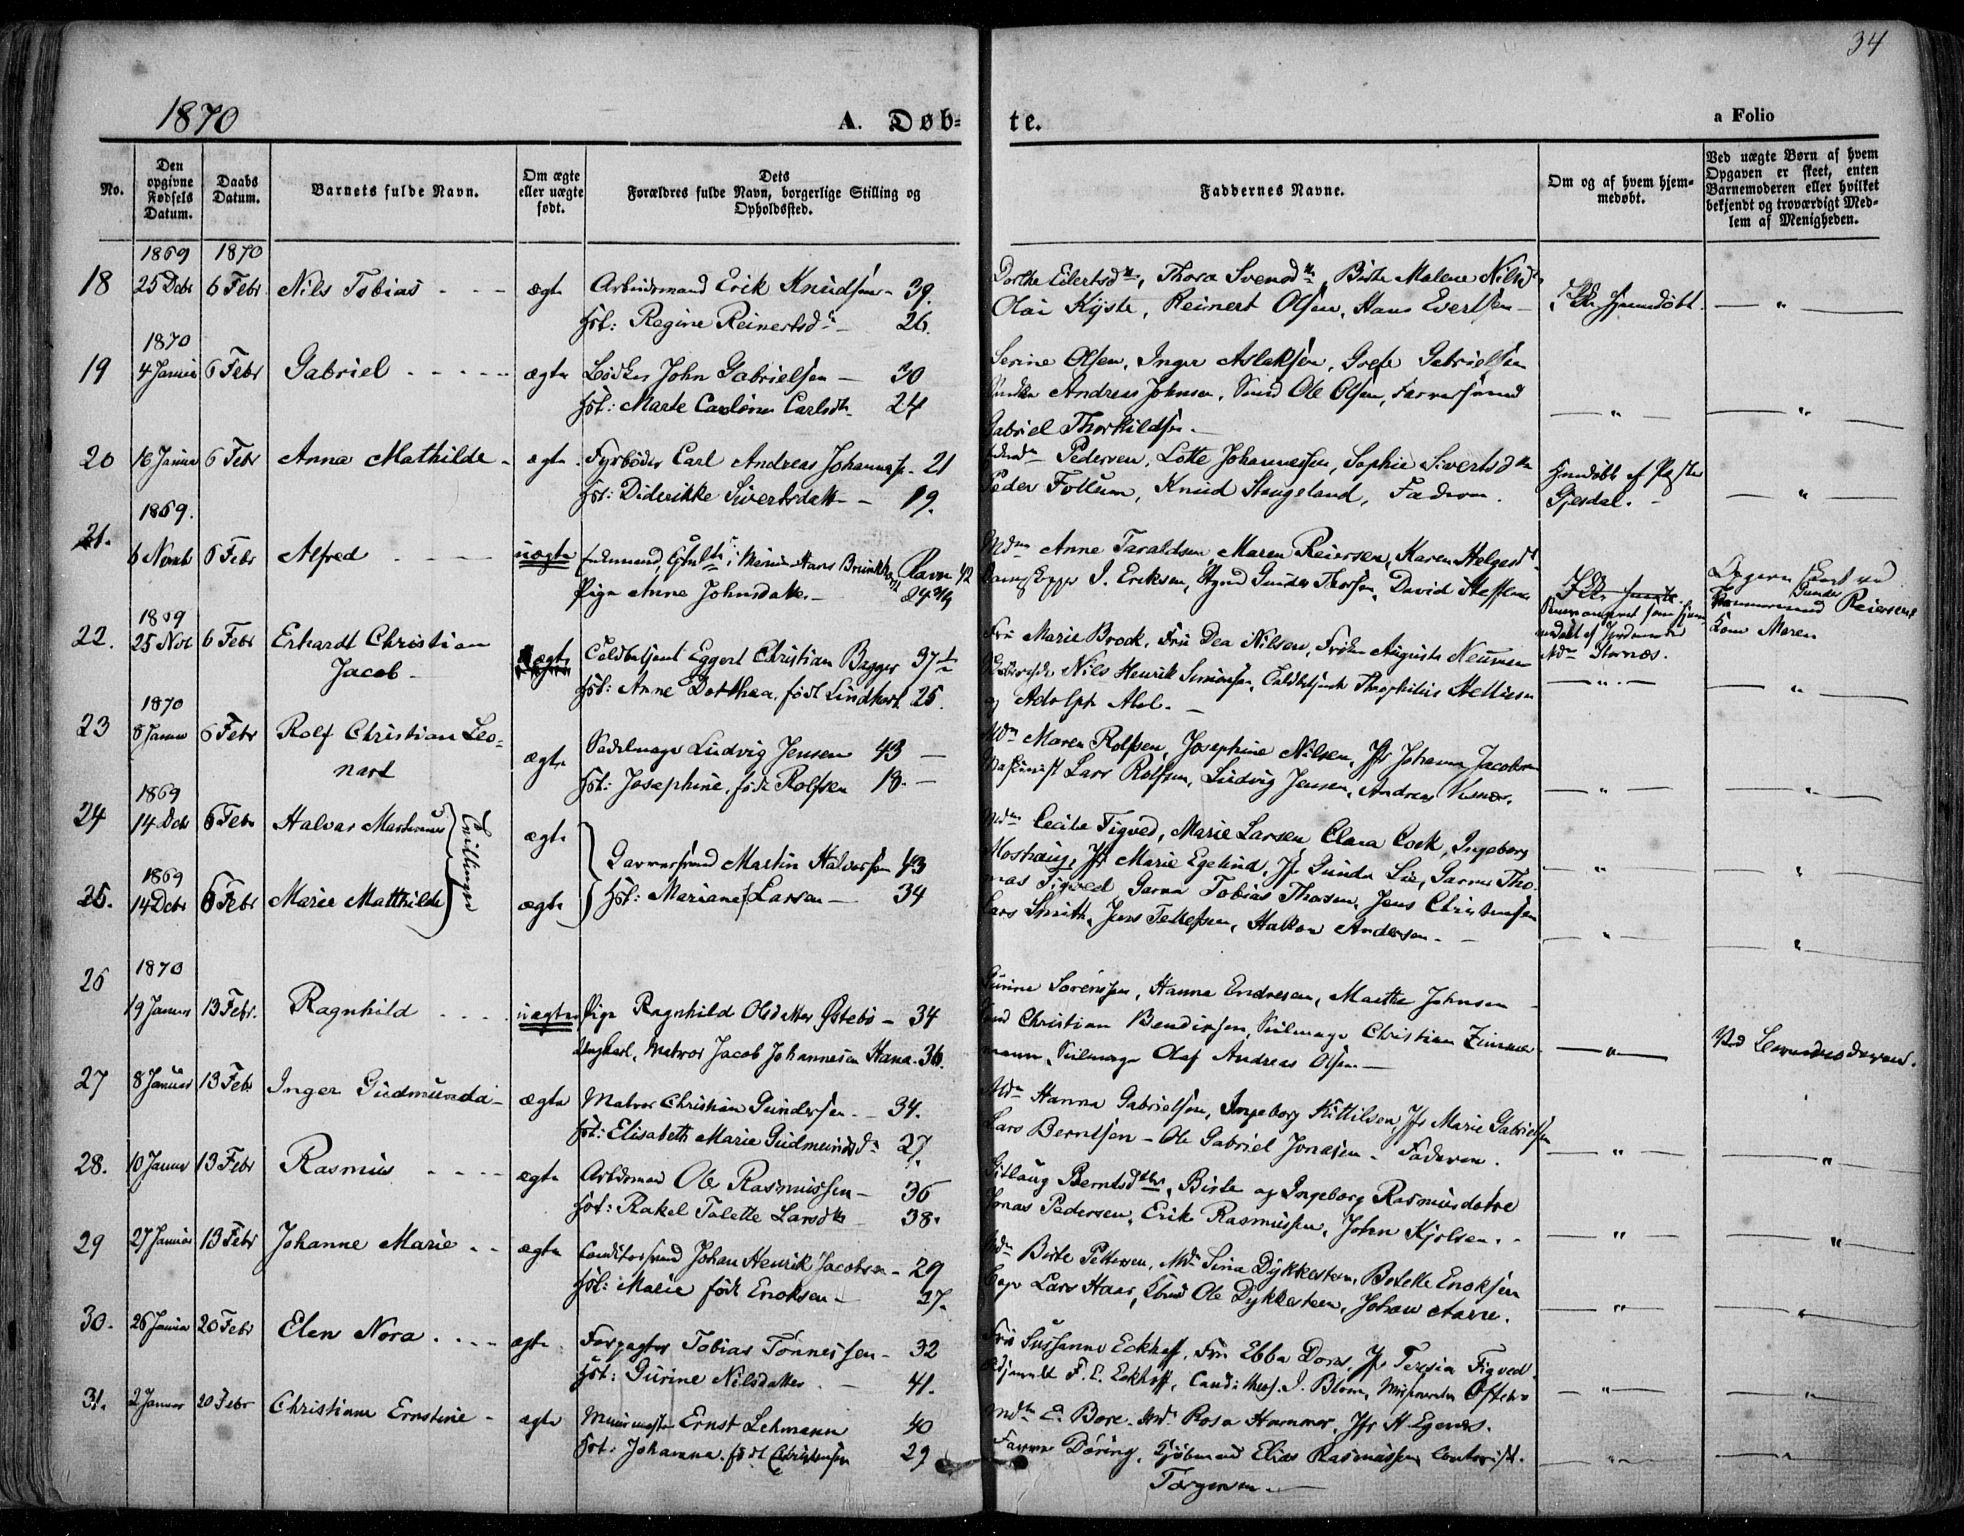 34
1870
A. Døb-
te.
a Folio
No.
Den opgivne Fødsels Datum.
Daabs Datum.
Barnets fulde Navn.
Om ægte eller uægte født.
Dets Forældres fulde Navn, borgerlige Stilling og Opholdssted.
Faddernes Navne.
Om og af hvem hjemmedøbt.
Ved uægte Børn af hvem Opgaven er skeet, enten Barnemoderen eller hvilket bekjendt og troværdigt Medlem af Menigheden.
1869 1870
18 25 Decbr 6 Febr Nils Tobias - - - ægte Arbeidsmand Erik Knudsen - 39.
Hst: Regine Reinertsdr - 26.
Dorthe Eilertsdtr, Thora Svendsdtr, Birte Malene Nilsd
Olai Kyste, Reinert Olsen, Hans Evertsen -
Ikke hjemmedøbt. — " —
1870
19 4 Januar 6 Febr Gabriel - - - - - ægte Bødker John Gabrielsen - 30
Hst: Marte Caroline Carlsdtr. 24
Serine Olsen, Inger Aslaksen, Grete Gabrielsen
Andreas Johnsen, Smed Ole Olsen, Farversvend
Gabriel Thorkildsen. —
— " — — " —
20 16 Januar 6 Febr Anna Mathilde - ægte Fyrbøder Carl Andreas Johannes. - 21
Hst: Diderikke Sivertsdatter - 19.
Pedersen, Lotte Johannessen, Sophie Sivertsdtr
Peder Follum, Knud Stugeland, Faderen.
Hjemdøbt af Pastor
Gjesdal. — — " —
1869.
21. 6 Novb 6 Febr Alfred - - - - uægte Hans Brinkhof Ravn 42
Pige Anne Johnsdatter - 24
Mdm Anne Taraldsen, Maren Reiersen, Karen Helgesd
I. Eriksen, Gunder Thorsen, David Steffens
Opgaven skeet ved
Gunder Reiersens
Kone Maren
1869
22. 25 Nov 6 Febr Erhardt Christian
Jacob -
ægte Toldbetjent Eggert Christian Bagger 37½
Hst: Anne Dorthea, født Lindhart 25.
Fru Marie Brock, Fru Dea Nilsen, Frøken Augusta Neuman
Nils Henrik Simonsen, Toldbetjent Theophilus Mettiesen
og Adolph Abel. —
Mdm Stornæs.
— " — — " —
1870
23 8 Januar 6 Febr Rolf Christian Leo-
nart
ægte Sadelmager Ludvig Jensen 43 —
Hst: Josephine, født Rolfsen 18. —
Mdm Maren Rolfsen, Josephine Nilsen, Jfr Johanna Jacobsen
Maskinist Lars Rolfsen, Ludvig Jensen, Andreas Visnes.
— " — — " —
1869
24 14 Decb 6 Febr Halvar Martinius ægte
Tvillinger
Garversvend Martin Halvorsen 43
Hst: Mariane Larsen - 34
1869
25. 14 Decbr 6 Febr Marie Matthilde ægte
Mdm Cecile Figved, Marie Larsen Clara Cock, Ingeborg
Moshaug, Jfr Marie Egelund, Jfr Gunda Lie, Garver Tho-
mas Figved Garver Tobias Thorsen, Jens Christensen
Lars Smith, Jens Tellefsen, Haktor Andersen. —
— " — — " —
— " — — " —
1870
26 19 Januar 13 Febr. Ragnhild - - - - uægte Pige Ragnhild Olsdatter Østebø - 34
Ungkarl, Matros Jacob Johannesen Hana. 36.
Gurine Sørensen, Hanna Endresen, Marthe Johnsen -
Christian Bendixsen, Seilmager Christian Zimmer-
mann, Seilmager Olaf Andreas Olsen —
— " — Ved Barnemoderen.
27 8 Januar 13 Febr Inger Gudmunda - ægte Matros Christian Gundersen - 34.
Hst: Elisabeth Marie Gudmundsdr 27.
Mdm Hanna Gabrielsen, Ingeborg Kittilsen, Jfr Marie Gabrielsen
Lars Berntsen - Ole Gabriel Jonasen - Faderen.
— " — — " —
28. 10 Januar 13 Febr Rasmus - - - - ægte Arbdsmand Ole Rasmussen - 36
Hst: Rakel Talette Larsdtr - 38.
Gitlaug Berntsdtr, Birte og Ingeborg Rasmusdotre
Jonas Pedersen, Erik Rasmussen, John Kjolsen. -
— " — — " —
29 27 Januar 13 Febr Johanne Marie - - ægte Conditorsvend Johan Henrik Jacobsen - 29
Hst: Marie født Enoksen - 27.
Mdm Birte Pettersen, Mdm Sina Dykkesteen, Botette Enoksen
Capt Lars Haar, Ole Dykkesteen, Johan Aarre.
— " — — " —
30. 26 Januar 20 Febr Elen Nora - - - - ægte Forpagter Tobias Tønnessen - 32
Hst: Gurine Nilsdatter. - 41.
Fru Susanne Eckhoff, Fru Ebba Dons, Jfr Teresia Figved
F. E. Eckhoff, Cand. theol. J. Blom, Oftebro
— " — — " —
31. 2 Januar 20 Febr Christiane Ernstine - ægte Muurmester Ernst Lehmann 40
Hst: Johanna født Christensen 29
Mdm E. Bore. Mdm Rosa Hammer, Jfr H Egenes.
Farver Döring, Kjøbmand Elias Rasmussen Contorist
Torgersen. —
— " — — " —